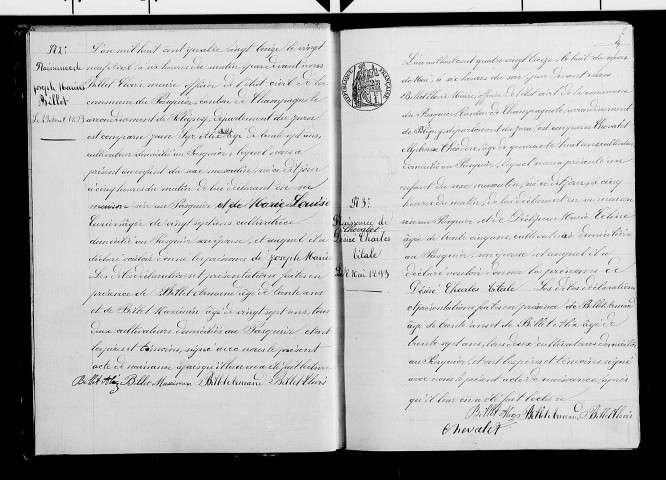 N° 2:
Naissance de
Joseph Marius
Billet
L'an mil huit cent quatre vingt treize le vingt
neuf avril, à six heures du matin par devant nous
Billet Clovis maire officier de l'état civil de la
commune du Pasquier canton de Champagnole
arrondissement de Poligny département du Jura
est comparu âgé de trente sept ans,
cultivateur domicilié au Pasquier, lequel nous a
présenté un enfant du sexe masculin, né ce dit jour
à cinq heures du matin de lui déclarant en sa
maison sise au Pasquier et de Marie Louise
âgée de vingt sept ans cultivatrice
domiciliée au Pasquier son épouse, et auquel il a
déclaré vouloir donner les prénoms de Joseph Marius
Les dites déclaration et présentation faites en
présence de Billet Armand âgé de trente ans
et de Billet Maximin âgé de vingt sept ans, tous
deux cultivateurs domiciliés au Pasquier et ont
les père et témoins, signé avec nous le présent
acte de naissance après qu'il leur en a été fait lecture
Billet Aloïs Billet Maximin Billet Armand Billet Clovis
4
RÉPUBLIQUE FRANÇAISE
N° 3:
Naissance de
Chevalet
Désiré Charles
Vitale
Le 8 Mai 1893
L'an mil huit cent quatre vingt treize, le huit du mois
de Mai, à six heures du soir par devant nous
Billet Clovis Maire, officier de l'état civil de la commune
du Pasquier Canton de Champagnole arrondissement
de Poligny, département du Jura, est comparu Chevalet
Alphonse âgé de quarante huit ans cultivateur
domicilié au Pasquier, lequel nous a présenté un
enfant du sexe masculin, né ce dit jour, à cinq
heures du matin, de lui déclarant en sa maison
sise au Pasquier, et de Marie
âgée de trente cinq ans, cultivatrice domiciliée
au Pasquier, son épouse et auquel il a
déclaré vouloir donner les prénoms de
Désiré Charles Vitale Les dites déclaration
et présentation faites en présence de Billet Armand
âgé de trente ans et de Billet Aloïs âgé de
trente sept ans, tous deux cultivateurs domiciliés
au Pasquier, et ont les père et témoins signé
avec nous le présent acte de naissance, après
qu'il leur en a été fait lecture
Billet Aloïs Billet Armand Billet Clovis
Chevalet